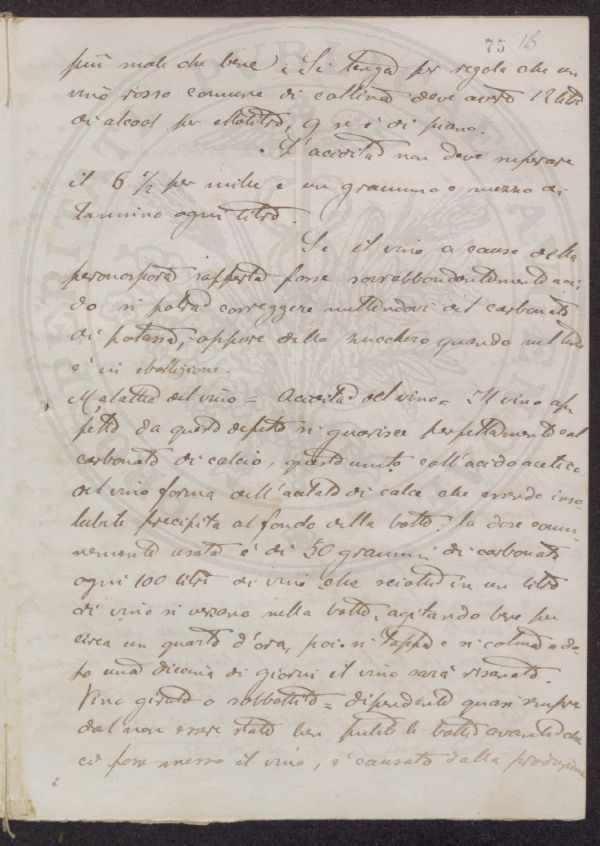 75 145
più male che bene. Si tenga per regola che un
vino rosso comune di collina deve avere 12 litri
di alcool per ettolitro, 9 se è di piano.
L'acidità non deve superare
il 6 1/2 per mille e un grammo e mezzo di
tannino ogni litro.
Se il vino a causa della
peronospora sofferta fosse sovrabbondantemente aci-
do si potrà correggere mettendovi del carbonato
di potassa, oppure dello zucchero quando nel tino
è in ebollizione.
Malattia del vino = Acidità del vino = Il vino af-
fetto da questo difetto si guarisce perfettamente col
carbonato di calcio, questo unito coll'acido acetico
del vino forma dell'acetato di calce che essendo inso-
lubile precipita al fondo della botte. la dose comu-
nemente usata è di 50 grammi di carbonato
ogni 100 litri di vino che sciolto in un litro
di vino si versano nella botte, agitando bene per
circa un quarto d'ora, poi si tappa e si colma e do-
po una diecina di giorni il vino sarà risanato.
Vino girato o sobbollito = dipendente quasi sempre
dal non essere stato ben pulite le botti avanti che
ci fosse messo il vino, è causato dalla produzione